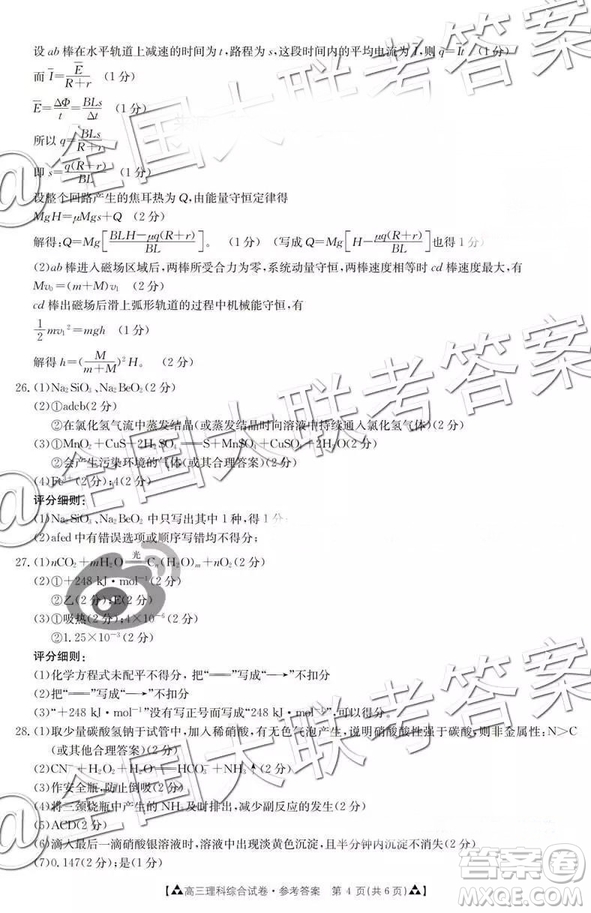 设ab棒在水平轨道上减速的时间为t,路程为s,这段时间内的平均电流为I̅,则q=I̅t (1分)
而I̅=E̅/(R+r) (1分)
E̅=ΔΦ/t=BLs/Δt
所以q=BLs/(R+r)
即s=q(R+r)/BL
设整个回路产生的焦耳热为Q,由能量守恒定律得
MgH=μMgs+Q (2分)
解得:Q=Mg[(BLH-μq(R+r))/BL]。 (1分) (写成Q=Mg[H-μq(R+r)/BL]也得1分)
(2)ab棒进入磁场区域后,两棒所受安培力的冲量和为零,系统动量守恒,两棒速度相等时cd棒速度最大,有
Mv₀=(m+M)v₁ (2分)
cd棒出磁场后滑上弧形轨道的过程中机械能守恒,有
1/2mv₁²=mgh (1分)
解得h=(M/(m+M))²H。 (2分)
26.(1)Na₂SiO₃、Na₂BeO₂(2分)
(2)①adcb(2分)
②在氯化氢气流中蒸发结晶(或蒸发结晶时向溶液中持续通入氯化氢气体)(2分)
(3)①MnO₂+CuS+2H₂SO₄=S+MnSO₄+CuSO₄+2H₂O(2分)
②会产生污染环境的气体(或其他合理答案)(2分)
(4) 4(2分)
评分细则:
(1)Na₂SiO₃、Na₂BeO₂中只写出其中1种,得1
(2)afed中有错误选项或顺序写错均不得
27.(1)nCO₂+mH₂O=光=Cₙ(H₂O)ₘ+nO₂(2分)
(2)①+248 kJ·mol⁻¹(2分)
②乙(2分);E(2分)
(3)①吸热(2分);4×10⁻⁶(2分)
②1.25×10⁻³(2分)
评分细则:
(1)化学方程式未配平不得分,把“══”写成“→”不得分
(2)把“══”写成“→”不得分
(3)“+248 kJ·mol⁻¹”没有写正号而写成“248 kJ·mol⁻¹”,可以得分
28.(1)取少量碳酸氢钠于试管中,加入稀硝酸,有无色气泡产生,说明硝酸酸性大于碳酸,则非金属性:N>C
(或其他合理答案)(2分)
(2)CN⁻+H₂O₂+H₂O══HCO₃⁻+NH₃(2分)
(3)作安全瓶,防止倒吸(2分)
(4)将三颈烧瓶中产生的NH₃及时排出,减少副反应的发生(2分)
(5)ACD(2分)
(6)滴入最后一滴硝酸银溶液时,溶液中出现淡黄色沉淀,且半分钟内沉淀不消失(2分)
(7)0.147(2分);是(1分)
【▲高三理科综合试卷·参考答案 第4页(共6页)▲】
@全国大联考答案
@全国大联考答案
@全国大联考答案
答案圈
MXQE.COM